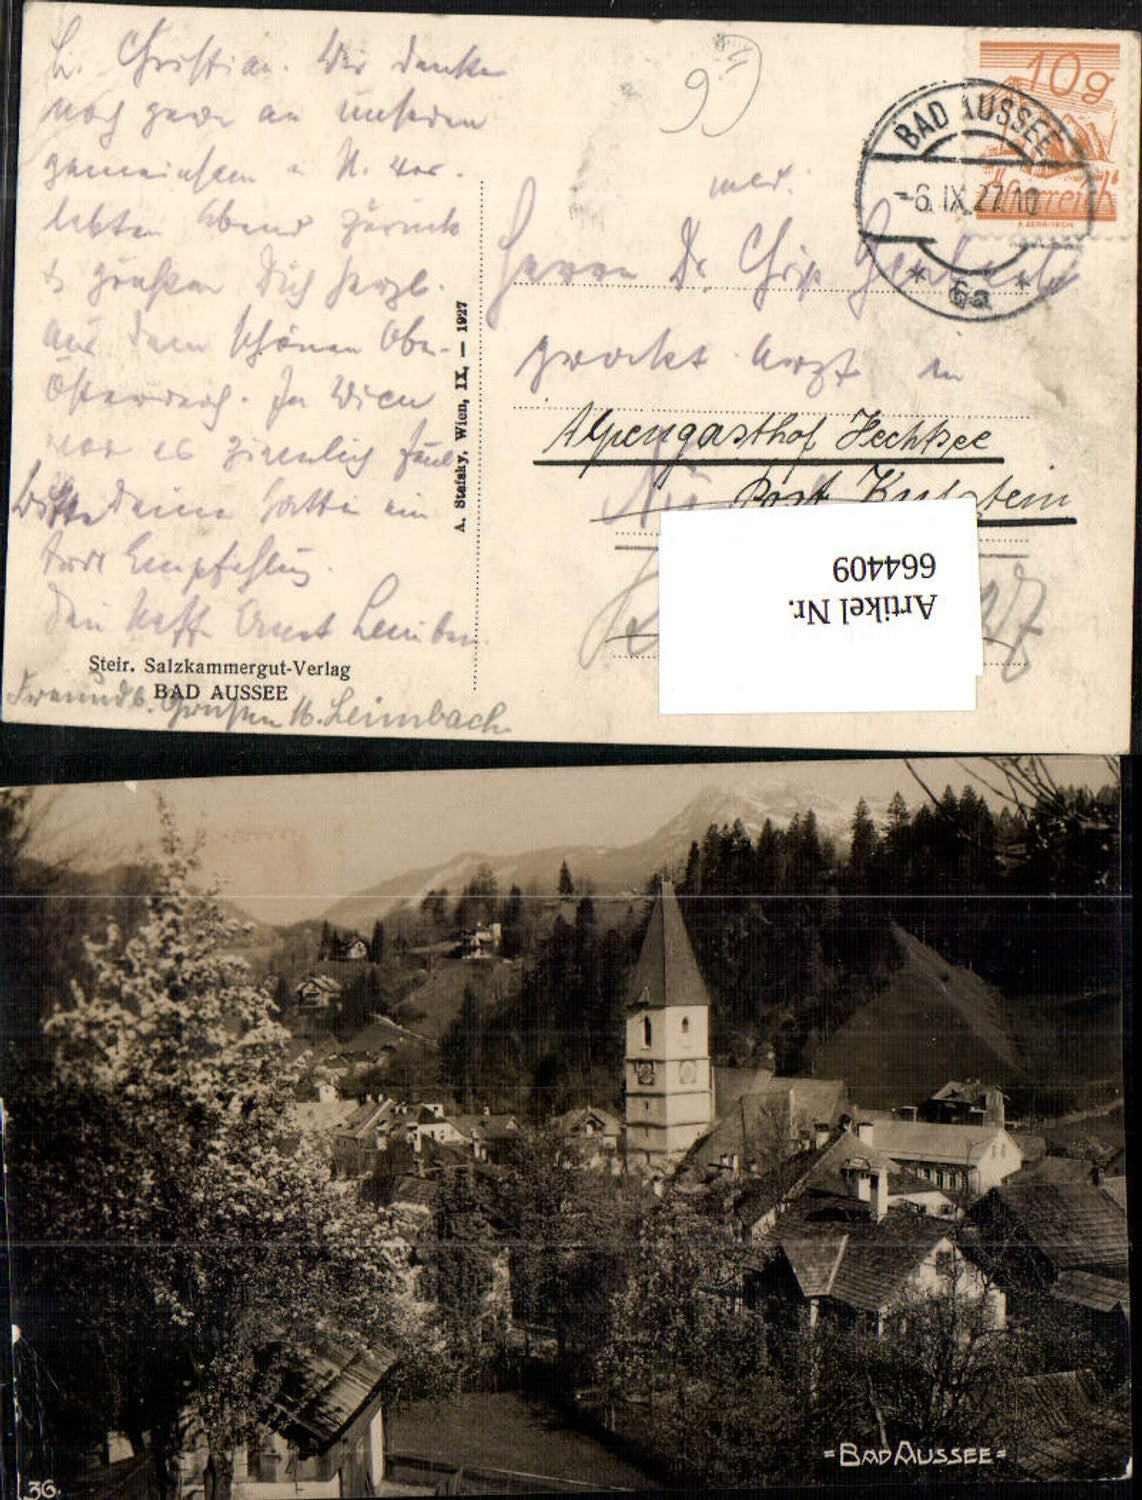 L. Christian. Wir denken
noch gern an unseren
gemeinsam i. N. ver-
lebten Abend zurück
& grüßen Dich herzl.
aus dem schönen Ober-
österreich. In Wien
war es ziemlich
Bitte Deine Gattin ein
Empfehlung.
Dein Neffe Ernst
Steir. Salzkammergut-Verlag
BAD AUSSEE
Freundl. Grüßen Leimbach
A. Stefsky, Wien, IX, — 1927
10g
Österreich
BAD AUSSEE
-6.IX.27.10
* 6a *
med.
Herrn Dr.
prakt. Arzt in
Alpengasthof Hechtsee
Post Kufstein
Artikel Nr.
664409
=BAD AUSSEE=
36.